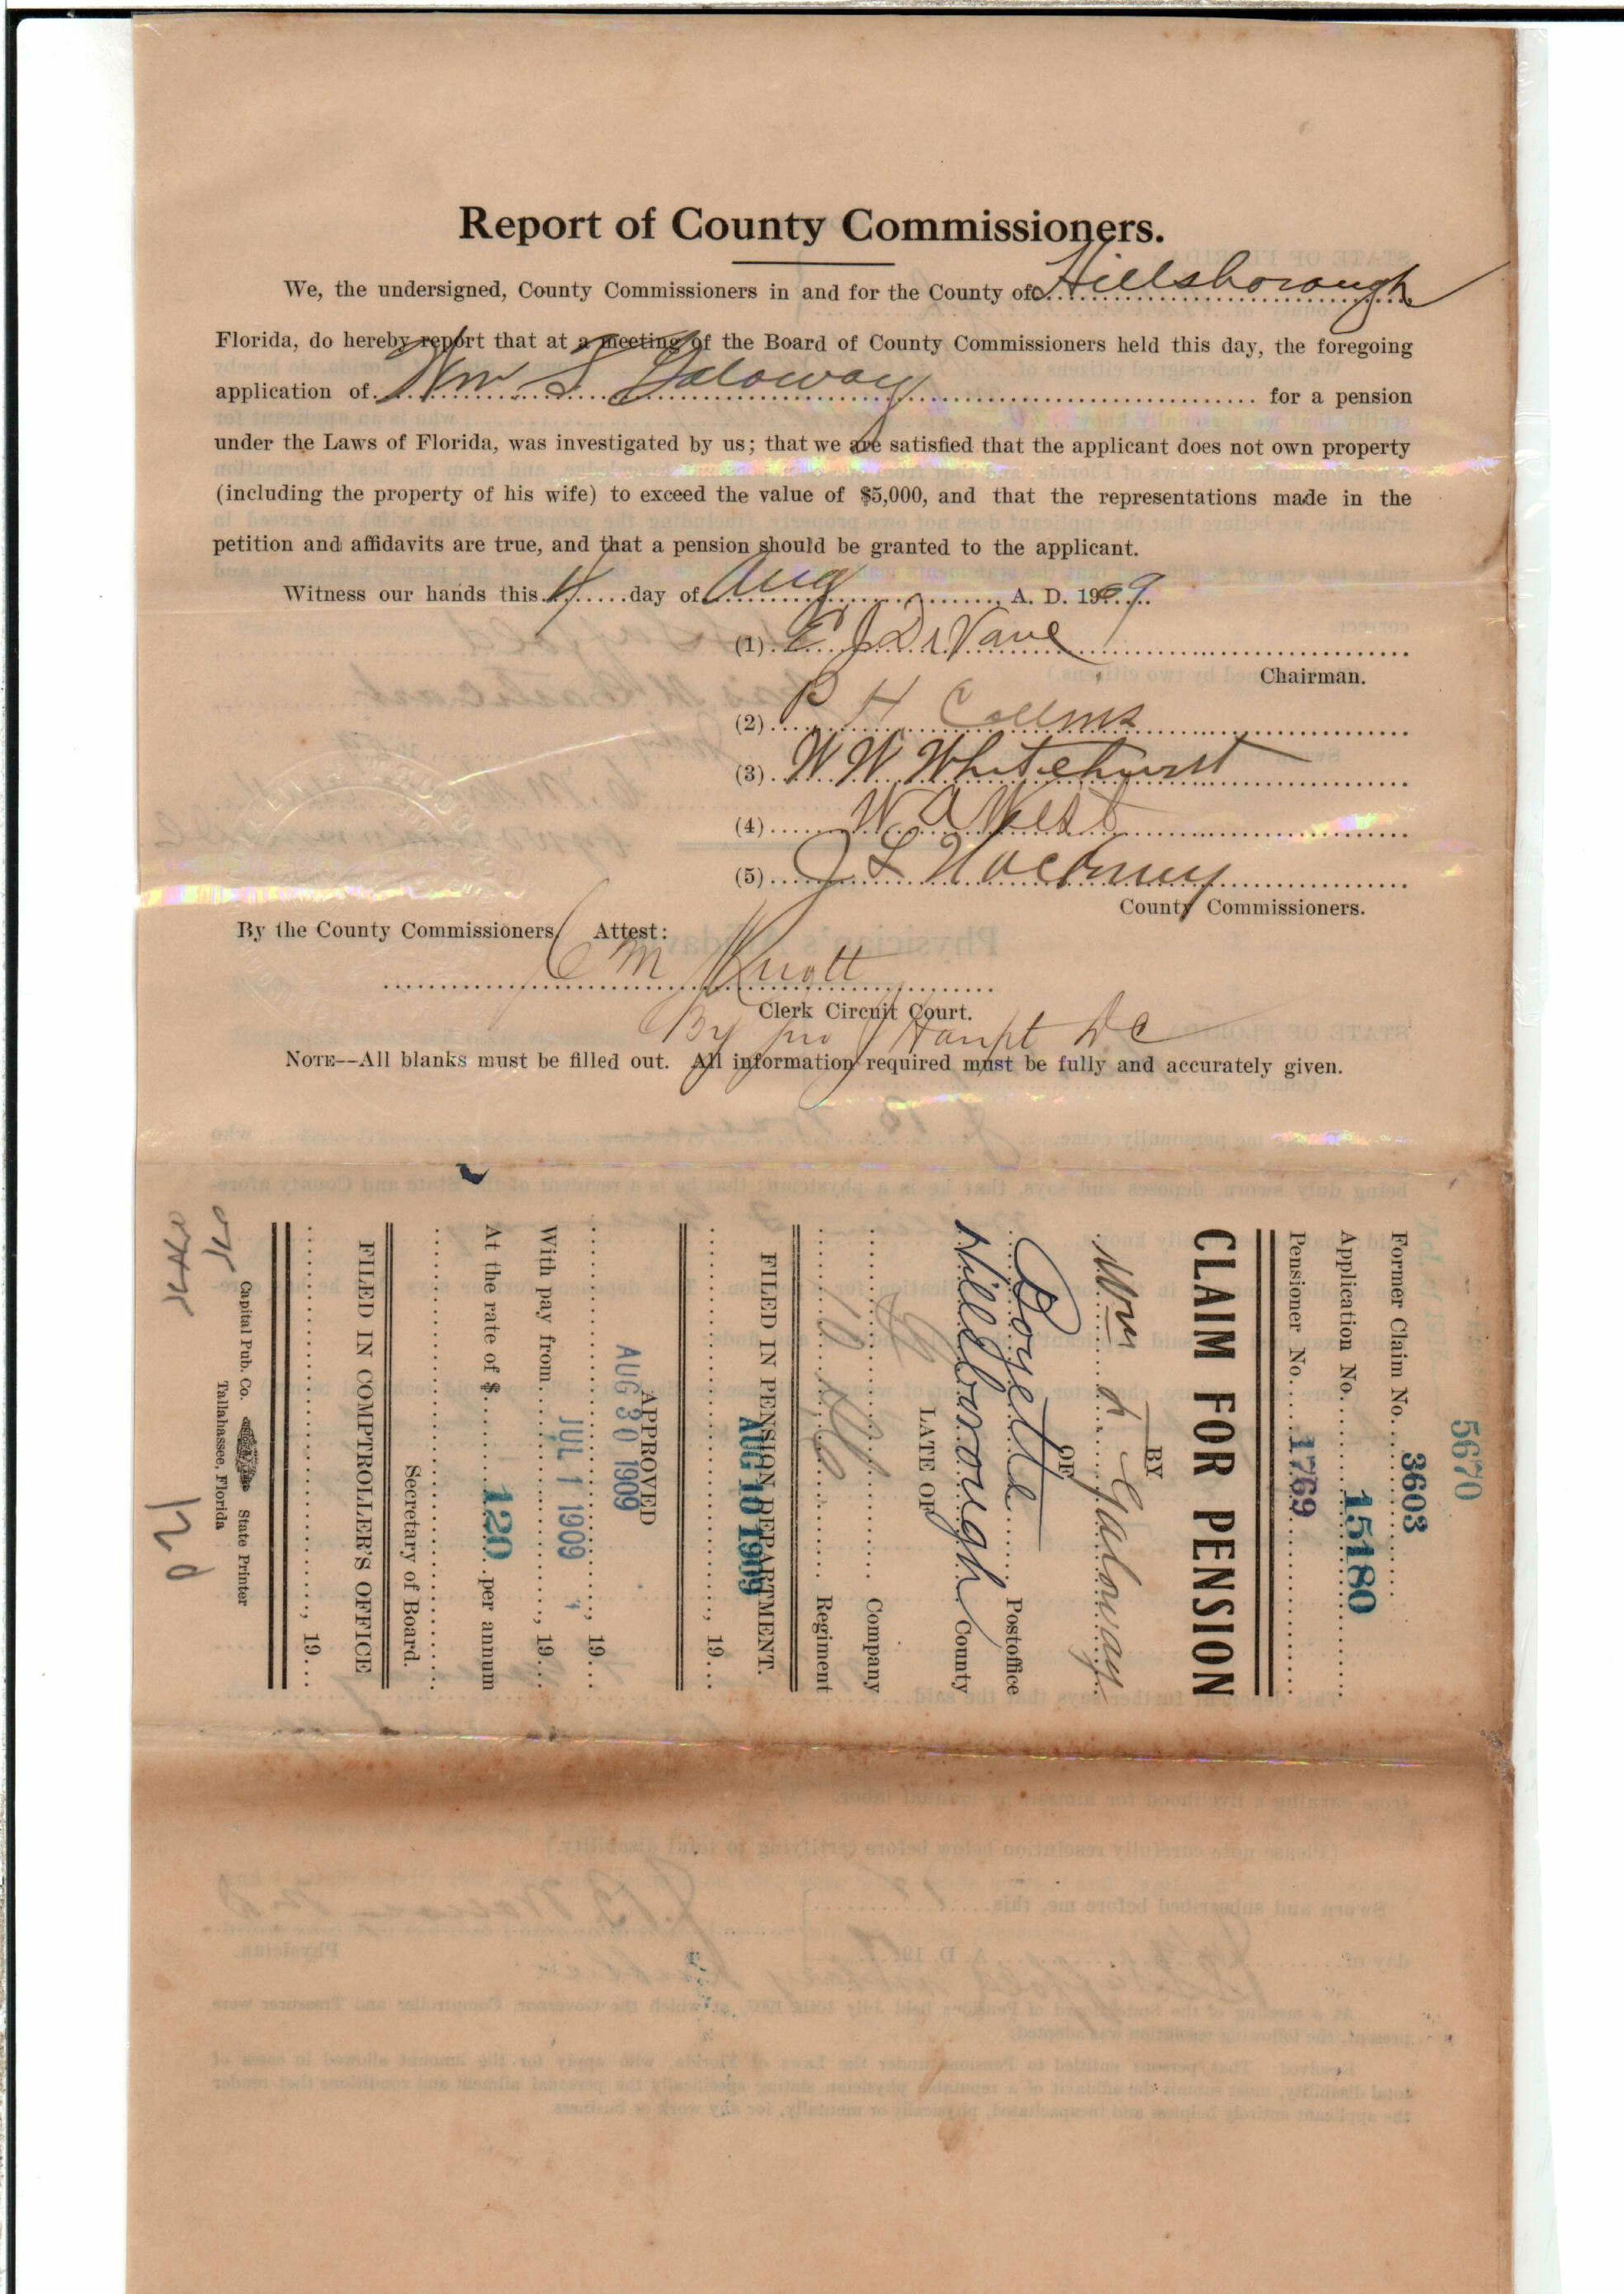 Report of County Commissioners.
We, the undersigned, County Commissioners in and for the County of Hillsborough
Florida, do hereby report that at a meeting of the Board of County Commissioners held this day, the foregoing
application of Wm S Galoway for a pension
under the Laws of Florida, was investigated by us; that we are satisfied that the applicant does not own property
(including the property of his wife) to exceed the value of $5,000, and that the representations made in the
petition and affidavits are true, and that a pension should be granted to the applicant.
Witness our hands this 4 day of Aug, A. D. 1909.
(1) E J DeVane
Chairman.
(2) B H Collins
(3) W W Whitehurst
(4) W A West
(5) J L
County Commissioners.
By the County Commissioners, Attest:
C M Knott
Clerk Circuit Court.
By Haupt D C
NOTE--All blanks must be filled out. All information required must be fully and accurately given.
5670
Former Claim No. 3603
Application No. 15180
Pensioner No. 1769
CLAIM FOR PENSION
BY
Wm S Galoway
OF
Boyette Postoffice
Hillsborough County
LATE OF
Company
10 Regiment
FILED IN PENSION DEPARTMENT.
AUG 10 1909
, 19
APPROVED
AUG 30 1909
, 19
With pay from JUL 1 1909, 19
At the rate of $ 120 per annum
Secretary of Board.
FILED IN COMPTROLLER'S OFFICE
, 19
Capital Pub. Co. State Printer
Tallahassee, Florida